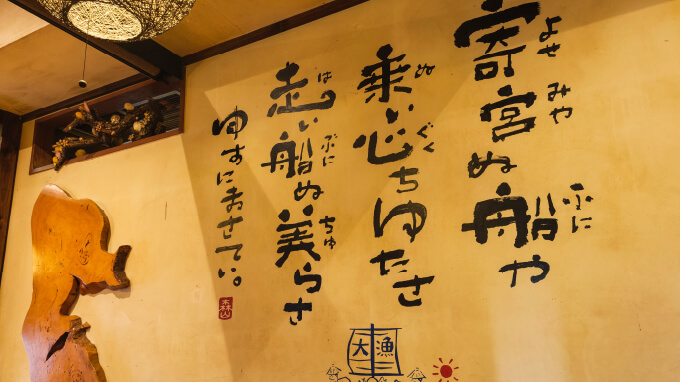 寄宮ぬ船や
よせ みや ふに
乗い心ちゆたさ
ぬ ぐく
走い船ぬ美らさ
は ふに ちゅ
ゆすにまさてぃ。
森山
大漁